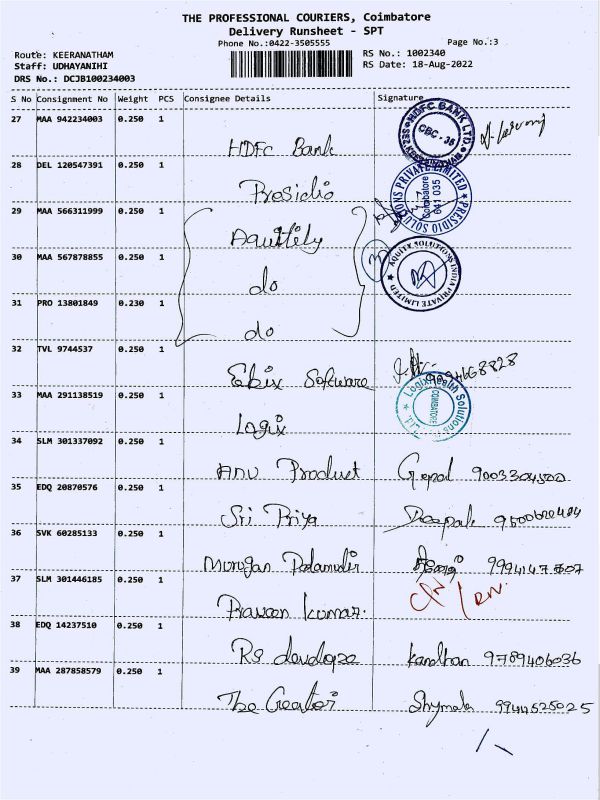 THE PROFESSIONAL COURIERS, Coimbatore
Delivery Runsheet - SPT
Phone No.:0422-3505555 Page No.:3
Route: KEERANATHAM RS No.: 1002340
Staff: UDHAYANIHI RS Date: 18-Aug-2022
DRS No.: DCJB100234003
S No Consignment No Weight PCS Consignee Details Signature
27 MAA 942234003 0.250 1
HDFC Bank
HDFC BANK LTD. CBC - 36
28 DEL 120547391 0.250 1
Presidio
PRESIDIO SOLUTIONS PRIVATE LIMITED Coimbatore 641 035
29 MAA 566311999 0.250 1
30 MAA 567878855 0.250 1
do
SOLUTIONS INDIA PRIVATE LIMITED
31 PRO 13801849 0.230 1
do
32 TVL 9744537 0.250 1
Ebix Software
33 MAA 291138519 0.250 1
Logix
LogixHealth Solutions COIMBATORE
34 SLM 301337092 0.250 1
ANU Product Gopal
35 EDQ 20870576 0.250 1
Sri Priya
36 SVK 60285133 0.250 1
Murugan
37 SLM 301446185 0.250 1
Praveen Kumar.
38 EDQ 14237510 0.250 1
RS 9789406036
39 MAA 287858579 0.250 1
The Creator Shymala 9944525025